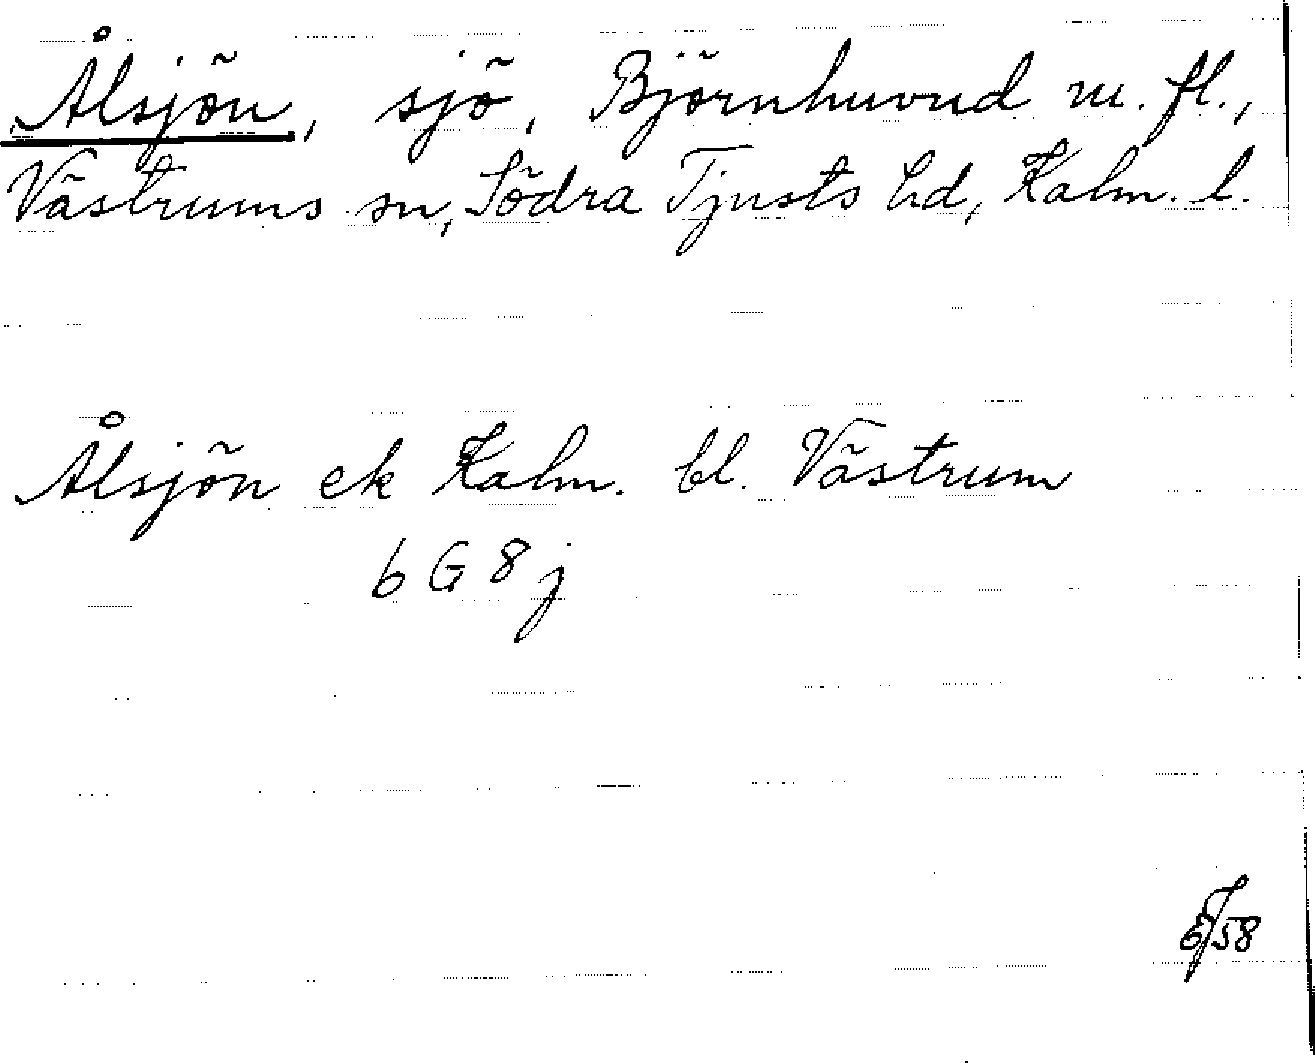 Ålsjön, sjö, Björnhuvud m. fl.,
Västrums sn, Södra Tjusts hd, Kalm. l.
Ålsjön ek Kalm. bl. Västrum
6 G 8 j